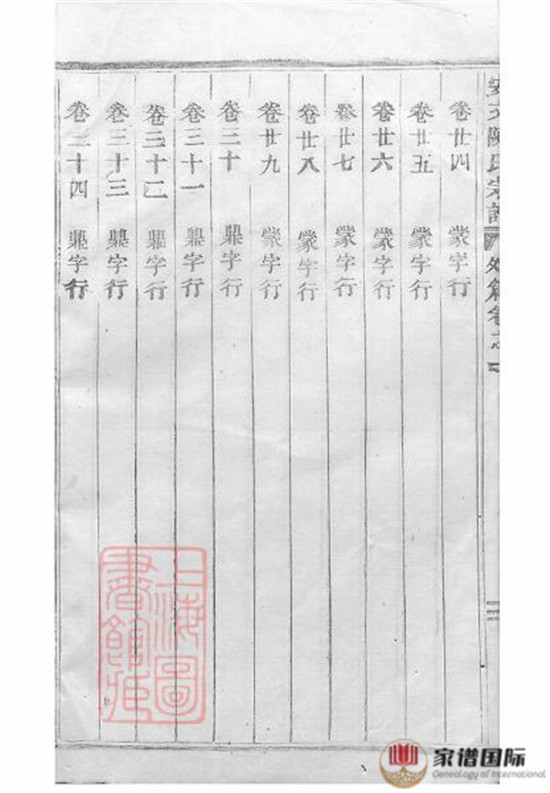 安文陳氏宗譜 外篇卷
卷廿四 蒙字行
卷廿五 蒙字行
卷廿六 蒙字行
卷廿七 蒙字行
卷廿八 蒙字行
卷廿九 蒙字行
卷三十 鼎字行
卷三十一 鼎字行
卷三十二 鼎字行
卷三十三 鼎字行
卷三十四 鼎字行
上海圖
書館藏
家谱国际
Genealogy of International